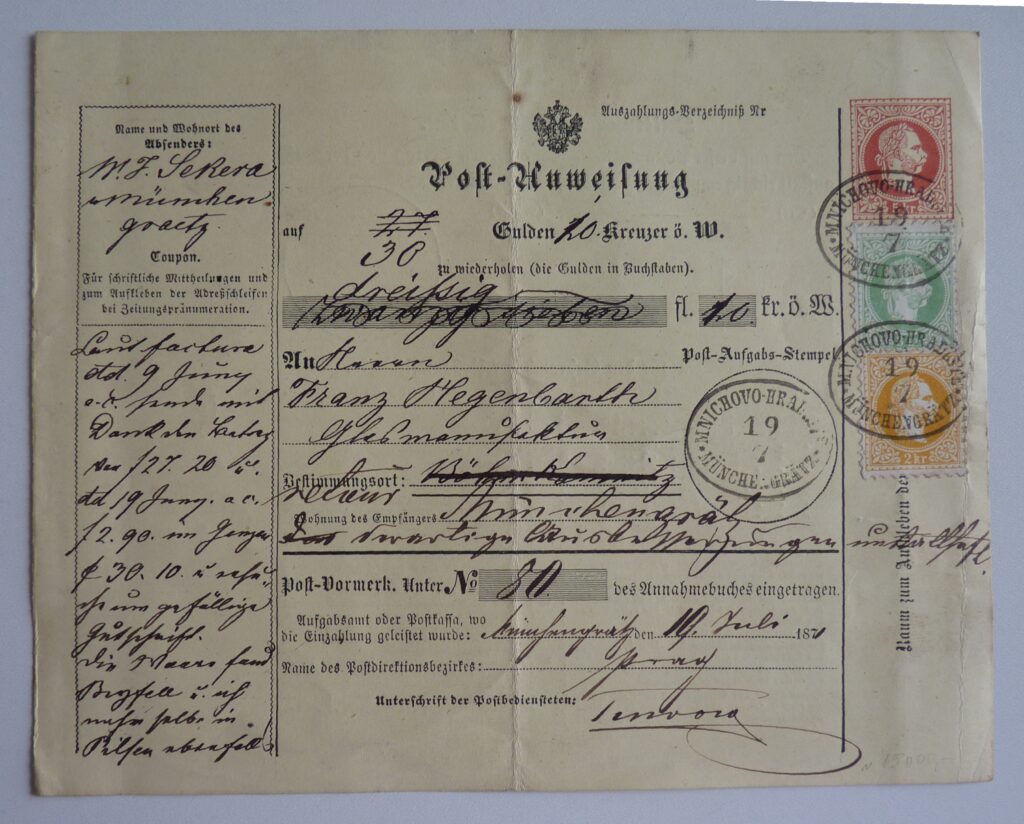 Name und Wohnort des
Absenders:
W. F. Sekera
München
graetz
Coupon.
Für schriftliche Mittheilungen und
zum Aufkleben der Adreßschleifen
bei Zeitungspränumeration.
Laut factura
dd. 9 Juny
a.c. sende mit
Dank den Betrag
von f 27. 20 u.
dd 19 Juny a.c.
f 2. 90. im Ganzen
f 30. 10. u ersu-
che um gefällige
Gutschrift.
Die Waare fand
Beyfall u. ich
nehm selbe in
Pilsen ebenfalls
Auszahlungs-Verzeichniß Nr
Post-Anweisung
auf 27 Gulden 10 Kreuzer ö. W.
30
zu wiederholen (die Gulden in Buchstaben).
dreißig
Zwanzig sieben fl. 10 kr. ö. W.
An Herrn
Post-Aufgabs-Stempel
Franz Hegenbarth
Glasmanufaktur
Bestimmungsort: Böhm Kamnitz
retour
Wohnung des Empfängers Münchengrätz
derartige Ausbesserungen unstatthaft.
Post-Vormerk. Unter No 80 des Annahmebuches eingetragen.
Aufgabsamt oder Postkassa, wo
die Einzahlung geleistet wurde: Münchengrätz den 19. Juli 187
Name des Postdirektionsbezirkes: Prag
Unterschrift der Postbediensteten:
MÜNCHENGRÄTZ
19
7
MÜNCHENGRÄTZ
19
7
MÜNCHENGRÄTZ
19
7
2 kr
Raum zum Aufkleben der